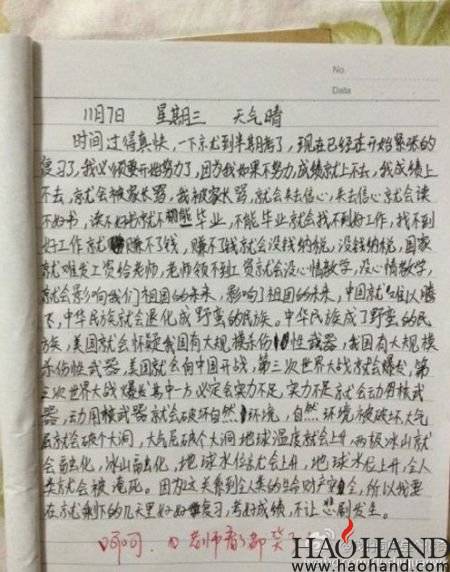 No.
Data
11月7日 星期三 天气晴
时间过得真快,一下就到半期考了,现在已经在开始紧张的
复习了,我必须要开始努力了,因为我如果不努力,成绩就上不去,我成绩上
不去,就会被家长骂,我被家长骂,就会失去信心,失去信心就会读
不好书,读不好书就不能毕业,不能毕业就会找不到好工作,找不到
好工作就赚不了钱,赚不了钱就会没钱纳税,没钱纳税,国家
就难发工资给老师,老师领不到工资就会没心情教学,没心情教学,
就会影响我们祖国的未来,影响了祖国的未来,中国就难以腾
飞,中华民族就会退化成野蛮的民族。中华民族成了野蛮的民
族,美国就会怀疑我国有大规模杀伤性武器,我国有大规模
杀伤性武器,美国就会向中国开战,第三次世界大战就会爆发,第
三次世界大战爆发其中一方必定会实力不足,实力不足就会动用核武
器,动用核武器就会破坏自然环境,自然环境被破坏,大气
层就会破个大洞,大气层破个大洞地球温度就会上升,两极冰山就
会融化,冰山融化,地球水位就会上升,地球水位上升,全人
类就会被淹死。因为这关系到全人类的生命财产安全,所以我要
在就剩下的几天里好好复习,考好成绩,不让悲剧发生。
呵呵,老师看了都笑了
HAOHAND
www.haohand.com